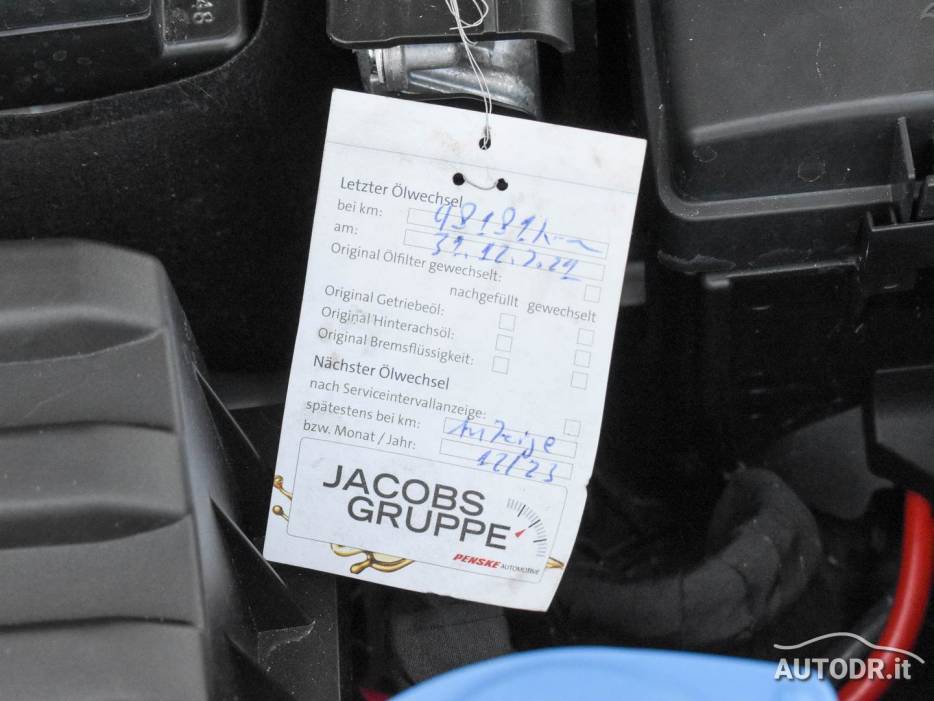 48
Letzter Ölwechsel
bei km: 48181km
am: 31.12.2021
Original Ölfilter gewechselt:
nachgefüllt gewechselt
Original Getriebeöl:
Original Hinterachsöl:
Original Bremsflüssigkeit:
Nächster Ölwechsel
nach Serviceintervallanzeige:
spätestens bei km: Anzeige
bzw. Monat / Jahr: 12/23
JACOBS
GRUPPE
PENSKE AUTOMOTIVE
AUTODR.it